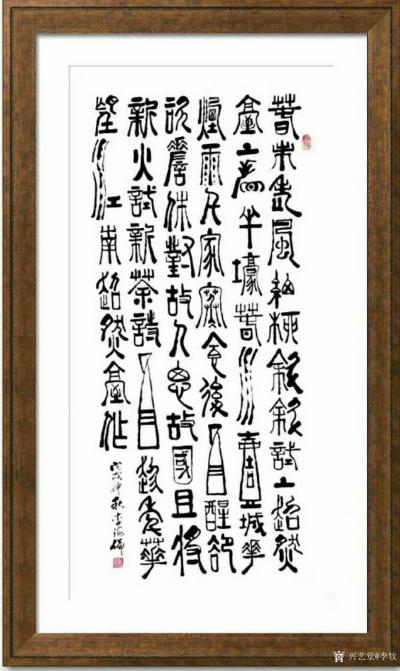 春未老風細柳斜斜試上超然
臺上看半壕春水壹城花
煙雨家寒食後酒醒卻
咨嗟休對故人思故國且將
新火試新茶詩酒趁年華
望江南超然臺作
戊戌仲秋李海
兴艺堂@李牧